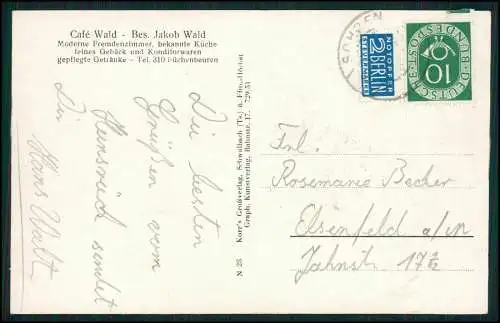 Café Wald - Bes. Jakob Wald
Moderne Fremdenzimmer, bekannte Küche
feines Gebäck und Konditorwaren
gepflegte Getränke - Tel. 310 Büchenbeuren
Die besten
Grüßen vom
Hunsrück sendet
Dir
Hans Walt
Korr's Großverlag, Schwalbach (Ts.)
Graph. Kunstverlag, Bahnstr. 17. 729.53
N 25
SOHREN
NOTOPFER
2 BERLIN
STEUERMARKE
DEUTSCHE BUNDESPOST
10
Frl.
Rosemarie Becker
Elsenfeld a/M
Jahnst. 17 1/2